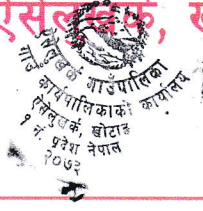 ऐसेलुखर्क, ख
ऐसेलुखर्क गाउँपालिका
गाउँ कार्यपालिकाको कार्यालय
ऐसेलुखर्क, खोटाङ
१ नं. प्रदेश नेपाल
२०७३